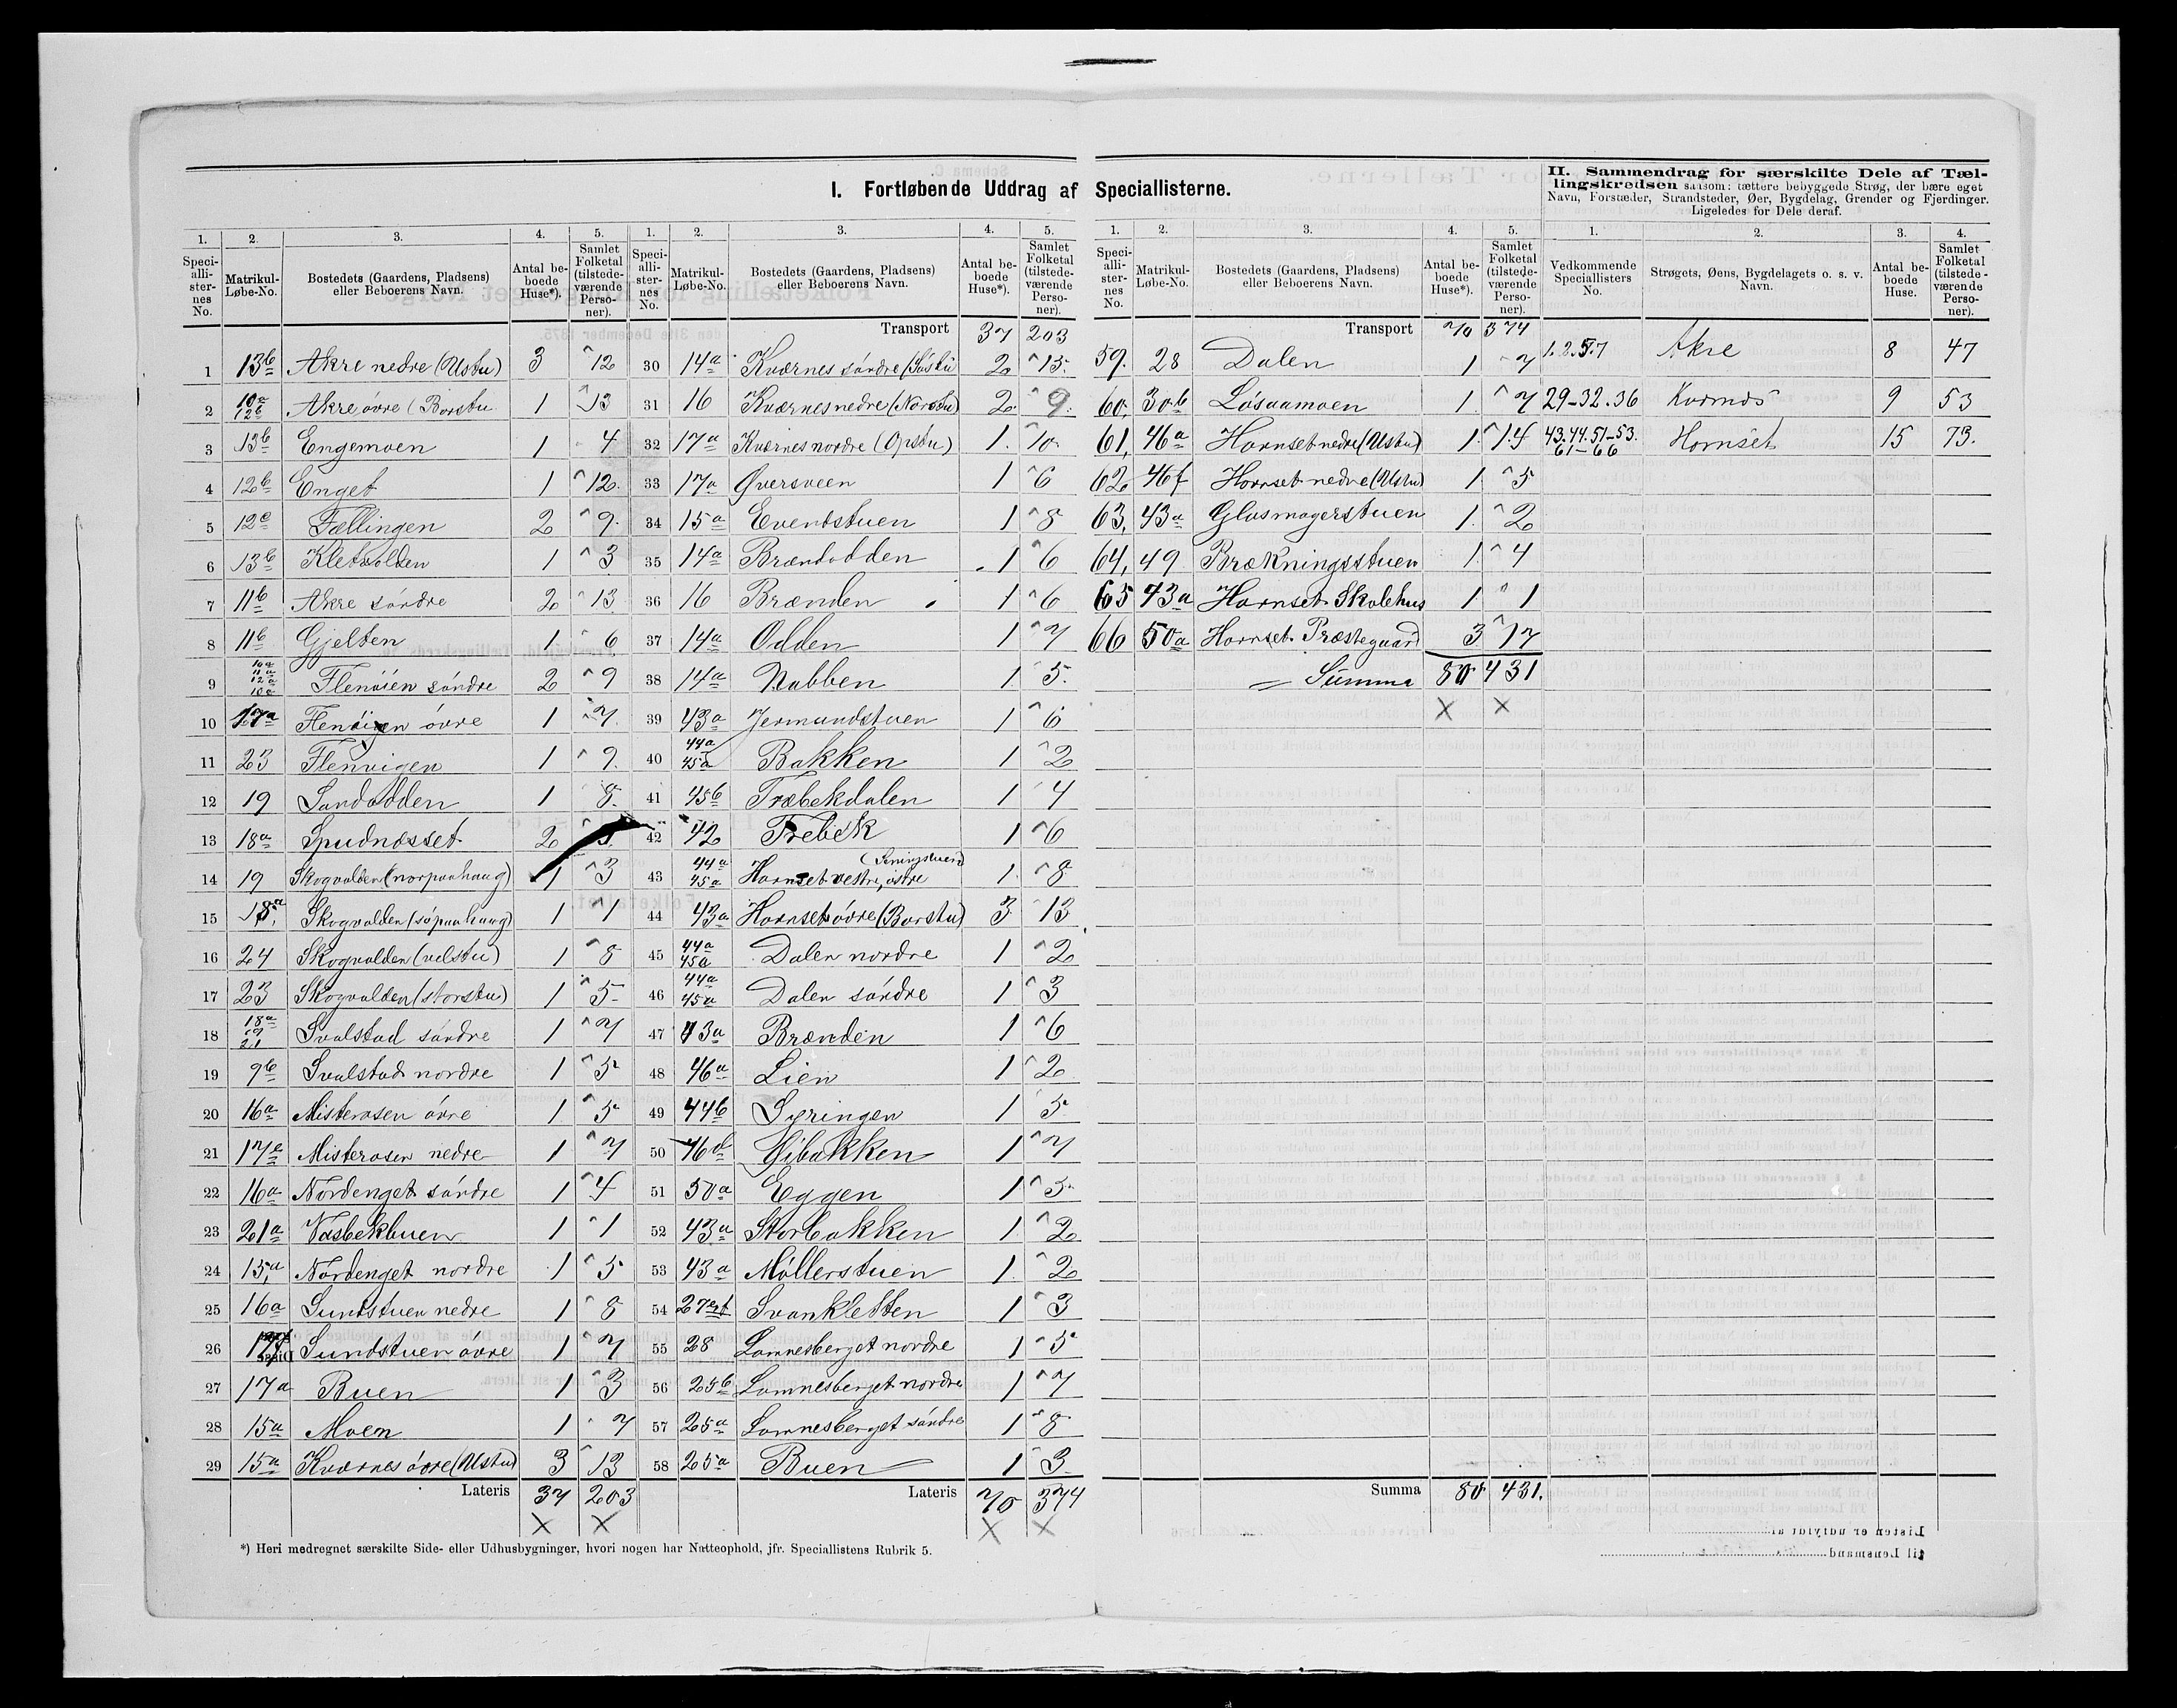 I. Fortløbende Uddrag af Speciallisterne.
II. Sammendrag for særskilte Dele af Tæl-
lingskredsen saasom: tættere bebyggede Strøg, der bære eget
Navn, Forstæder, Strandsteder, Øer, Bygdelag, Grender og Fjerdinger.
Ligeledes for Dele deraf.
1. 2. 3. 4. 5. 1. 2. 3. 4. 5. 1. 2. 3. 4. 5. 1. 2. 3. 4.
Speciallisternes No. Matrikul-Løbe-No. Bostedets (Gaardens, Pladsens) eller Beboerens Navn. Antal beboede Huse*). Samlet Folketal (tilstedeværende Personer).
Speciallisternes No. Matrikul-Løbe-No. Bostedets (Gaardens, Pladsens) eller Beboerens Navn. Antal beboede Huse*). Samlet Folketal (tilstedeværende Personer).
Speciallisternes No. Matrikul-Løbe-No. Bostedets (Gaardens, Pladsens) eller Beboerens Navn. Antal beboede Huse*). Samlet Folketal (tilstedeværende Personer).
Vedkommende Speciallisters No. Strøgets, Øens, Bygdelagets o. s. v. Navn. Antal beboede Huse. Samlet Folketal (tilstedeværende Personer).
1 13b Akre nedre (Ustu) 3 12
2 10a 12b Akre øvre (Borstu 1 13
3 13b Engemoen 1 4
4 12b Enget 1 12
5 12c Fællingen 2 9
6 13b Kletvolden 1 3
7 11b Akre søndre 2 13
8 11b Gjelten 1 6
9 Flenøien søndre 2 9
10 17a Flenøien øvre 1 7
11 23 Flenvigen 1 9
12 19 Sandodden 1 8
13 18a Spudnæsset 2
14 19 Skogvolden (norpaahaug) 1 3
15 18a Skogvolden (søpaahaug) 1 1
16 24 Skogvolden (velstu) 1 8
17 23 Skogvolden (storstu) 1 5
18 18a 19 21 Svalstad søndre 1 7
19 9b Svalstad nordre 1 5
20 16a Misterosen øvre 1 5
21 17e Misterosen nedre 1 7
22 16a Nordenget søndre 1 4
23 21a Vasbekbuen 1 1
24 15a Nordenget nordre 1 5
25 16a Sundstuen nedre 1 8
26 Sundstuen øvre 1 7
27 17a Buen 1 3
28 15a Moen 1 7
29 15a Kværnes øvre (Ustu) 3 13
Lateris 37 203
Transport 37 203
30 14a Kværnes søndre (Søstu 2 15
31 16 Kværnes nedre (Norstu) 2 9
32 17a Kværnes nordre (Opstu) 1 10
33 17a Øversveen 1 6
34 15a Evenstuen 1 8
35 14a Brændodden 1 6
36 16 Brænden 1 6
37 14a Odden 1 7
38 14a Nabben 1 5
39 43a Jermundstuen 1 6
40 44a 45a Bakken 1 2
41 45b Træbekdalen 1 4
42 42 Trebek 1 6
43 44a 45a Hornset vestre, østre 1 8
44 43a Hornset øvre (Borstu) 3 13
45 44a 45a Dalen nordre 1 2
46 44a 45a Dalen søndre 1 3
47 43a Brænden 1 6
48 46a Lien 1 2
49 44b Syringen 1 5
50 46d Hibakken 1 7
51 50a Eggen 1 5
52 43a Storbakken 1 2
53 43a Møllerstuen 1 2
54 Svankletten 1 3
55 28 Lomnesberget nordre 1 5
56 25b Lomnesberget nordre 1 7
57 25a Lomnesberget søndre 1 8
58 25a Buen 1 3
Lateris 70 374
Transport 70 374
59. 28 Dalen 1 7
60. 30b Løsaamoen 1 7
61. 46a Hornset nedre (Ustu) 1 14
62 46f Hornset nedre (Ustu) 1 5
63. 43a Glasmagerstuen 1 2
64. 49 Brækningsstuen 1 4
65 43a Hornset Skolehus 1 1
66 50a Hornset Præstegaard 3 17
Summa 80 431
Summa 80 431.
1.2.5.7 Akre 8 47
29-32.36 Kværnes 9 53
43.44.51-53. 61-66 Hornset 15 73.
*) Heri medregnet særskilte Side- eller Udhusbygninger, hvori nogen har Natteophold, jfr. Speciallistens Rubrik 5.